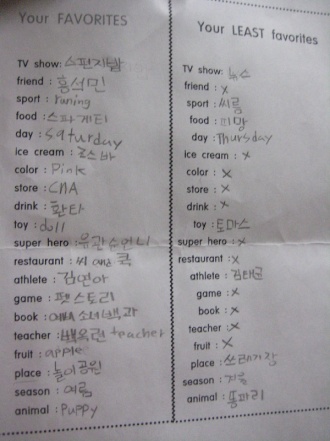 Your FAVORITES
TV show: 스펀지밥
friend : 홍석민
sport : runing
food : 스파게티
day : saturday
ice cream :
color : Pink
store : CNA
drink : 환타
toy : doll
super hero : 유관순언니
restaurant : 씨 and 콕
athlete : 김연아
game : 펫스토리
book : 소녀백과
teacher : teacher
fruit : apple
place : 놀이공원
season : 여름
animal : Puppy
Your LEAST favorites
TV show: 뉴스
friend : x
sport : 씨름
food : 피망
day : Thursday
ice cream : x
color : x
store : x
drink : x
toy : 토마스
super hero : x
restaurant : x
athlete :
game : x
book : x
teacher : x
fruit : x
place : 쓰레기장
season : 겨울
animal : 똥파리